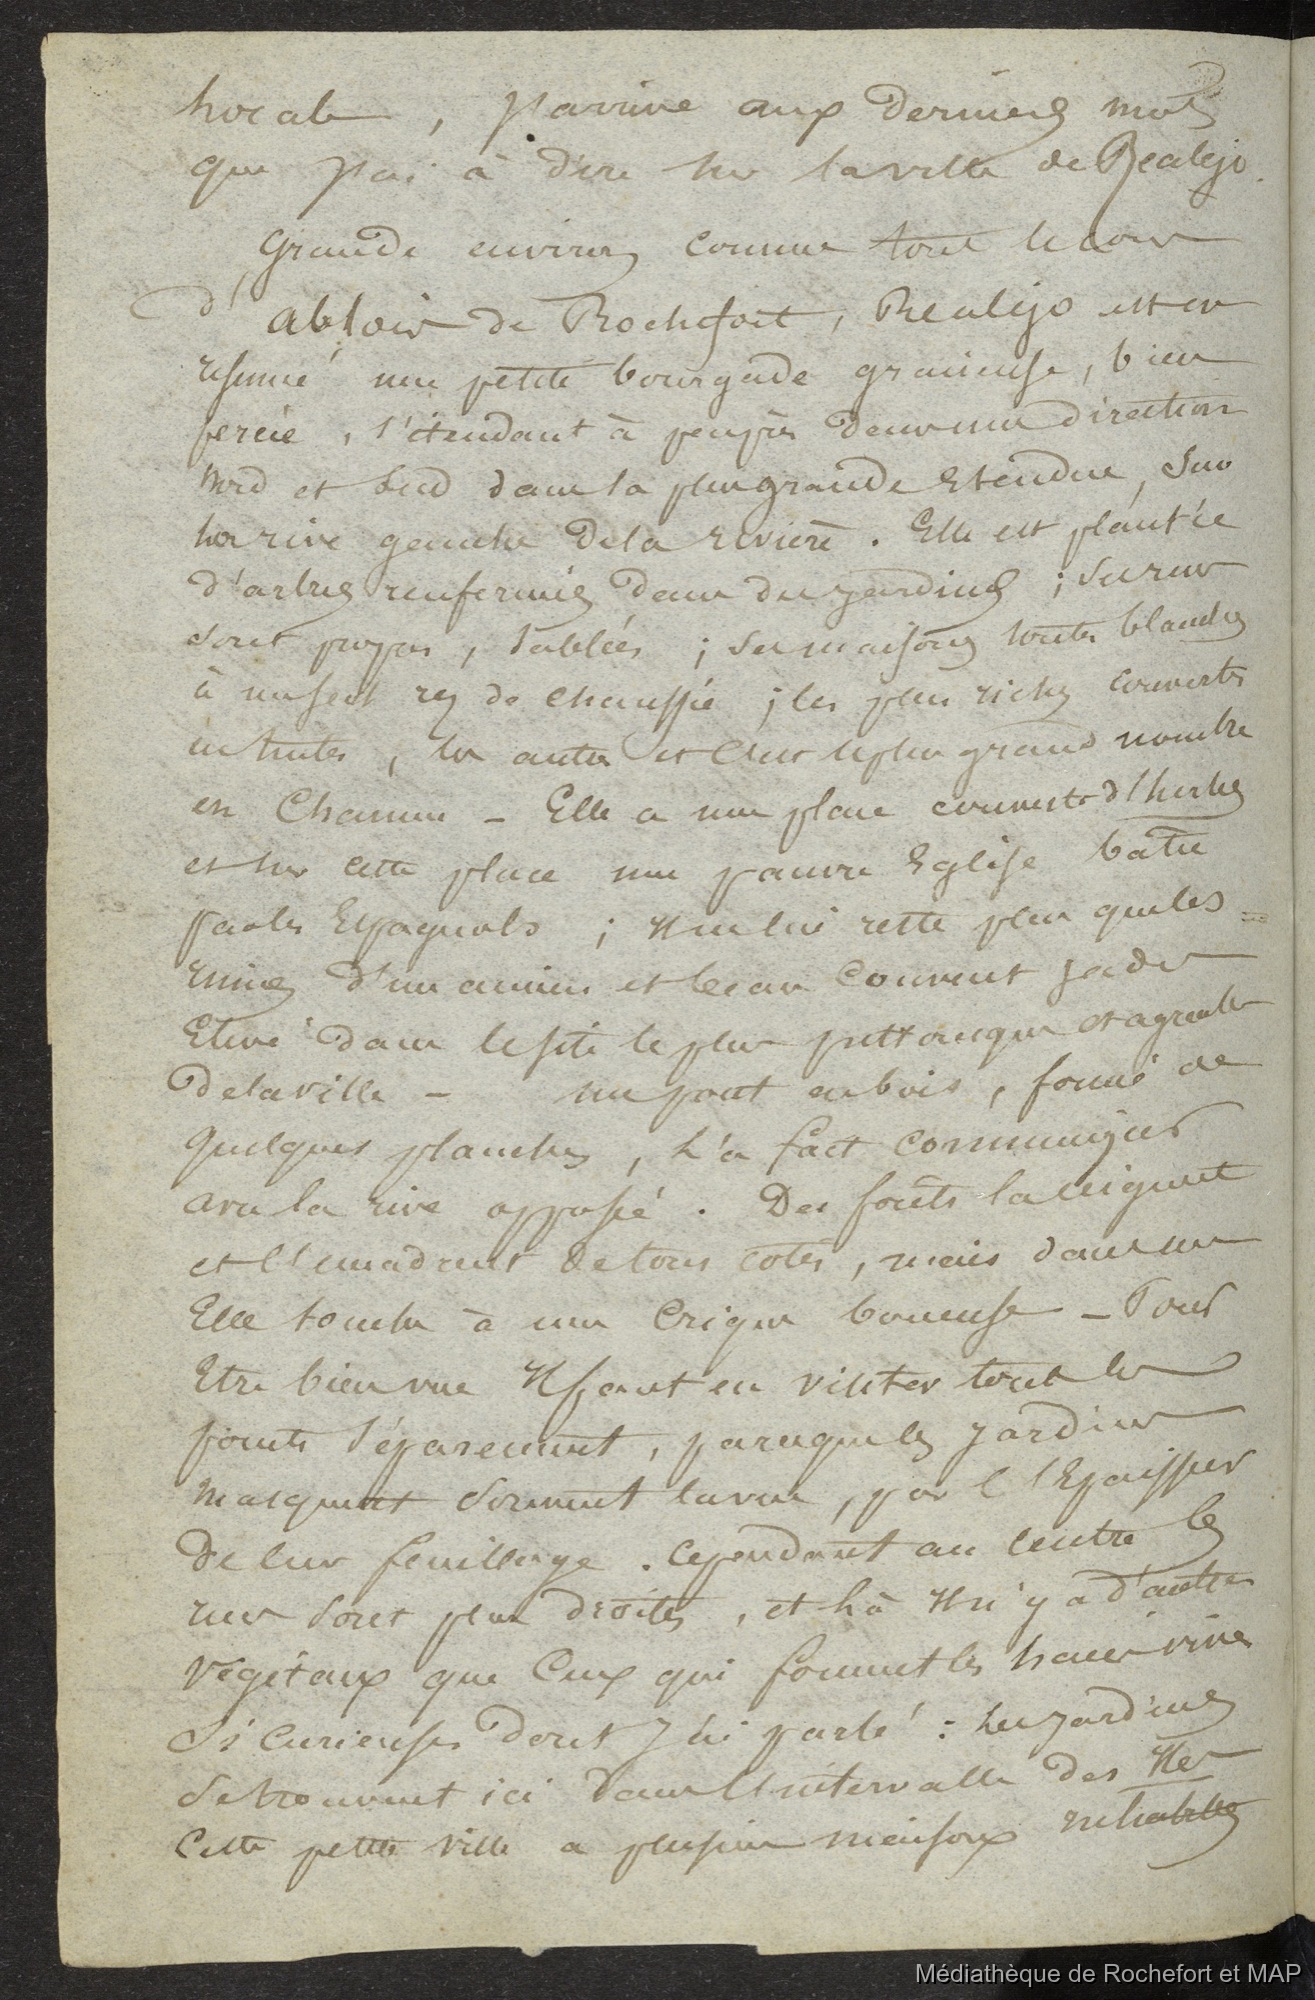 locale, j'arrive aux derniers mots
que j'ai à dire sur la ville de Realejo.
Grande environ comme tout le cour
d'abloir de Rochefort, Realejo est en
résumé une petite bourgade gracieuse, bien
percée, s'étendant à peuprès dans une direction
Nord et Sud dans la plus grande Etendue, sur
la rive gauche dela rivière. Elle est plantée
d'arbres renfermés dans des jardins ; ses rues
sont propres, sablées ; ses maisons toutes blanches
à un seul rez de chaussée ; les plus riches couvertes
en tuiles, les autres et c'est le plus grand nombre
en Chaume - Elle a une place couverte d'herbes
et sur cette place une pauvre Eglise bâtie
par les Espagnols ; Il ne lui reste plus que les =
ruines d'un ancien et beau Couvent jadis
Elevé dans le site le plus pittoresque et agreable
de la ville - un pont en bois, formé de
quelques planches, l'a fait communiquer
avec la rive opposée. Des forêts la ceignent
et l'encadrent de tous cotés, mais dans une
Elle touche à une Crique boueuse - Pour
Etre bien vue Il faut en visiter tout les
points séparement, parceque les jardins
masquent souvent la vue, par l'Epaisseur
de leur feuillage. Cependant au centre les
rues sont plus droites, et là Il n'y a d'autres
végétaux que Ceux qui forment les haies vives
si curieuses dont j'ai parlé : les jardins
se trouvent ici dans l'intervalle des
Cette petite ville a plusieurs maisons